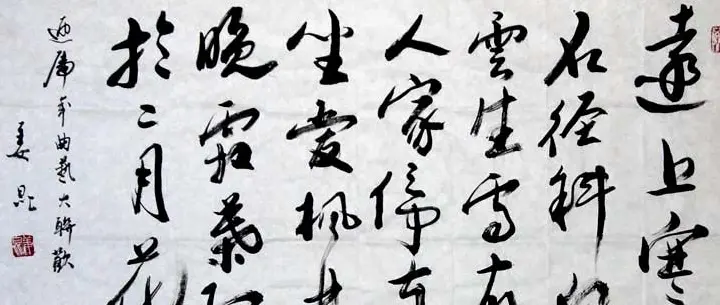 遠上寒
石径斜白
雲生處有
人家停車
坐愛楓林
晚霜葉紅
於二月花
迎虎年曲藝大聯歡
姜昆